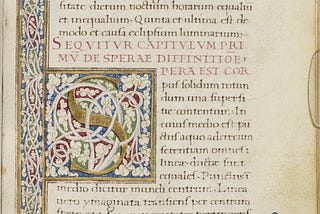 sitate dierum noctium horarum equaliu
et inequalium. Quinta et ultima est de
modo et causa eclipsium luminarium.
SEQVITVR CAPITVLVM PRI
MV DE SPERAE DIFFINITIOE
SPERA EST COR
pus solidum rotun
dum una superfi
tie contentum. In
cuius medio est pu
ctus a quo ad circun
ferentiam omnes
lineae ductae sunt
equales. Punctus
medio dicitur mundi centrum. Linea
uero ymaginata transiens per centrum